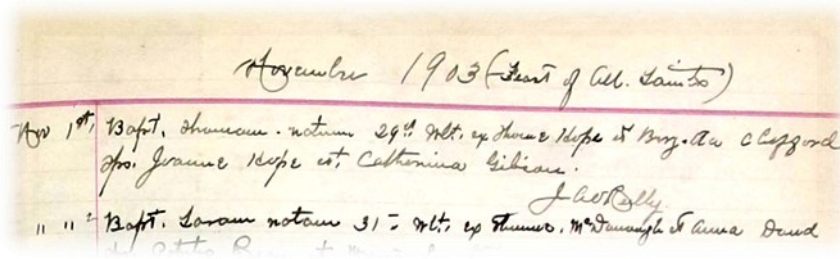 November 1903 (Feast of All. Saints)
Nov 1st, Bapt. Thomam. natum 29th Ult. ex Thoma Hope et Brg. Clifford
sps. Joanne Hope et, Catherina Gibson.
J A O'Reilly.
" " Bapt. Saram natam 31 Ult. ex Thoma. McDonough et Anna Doud